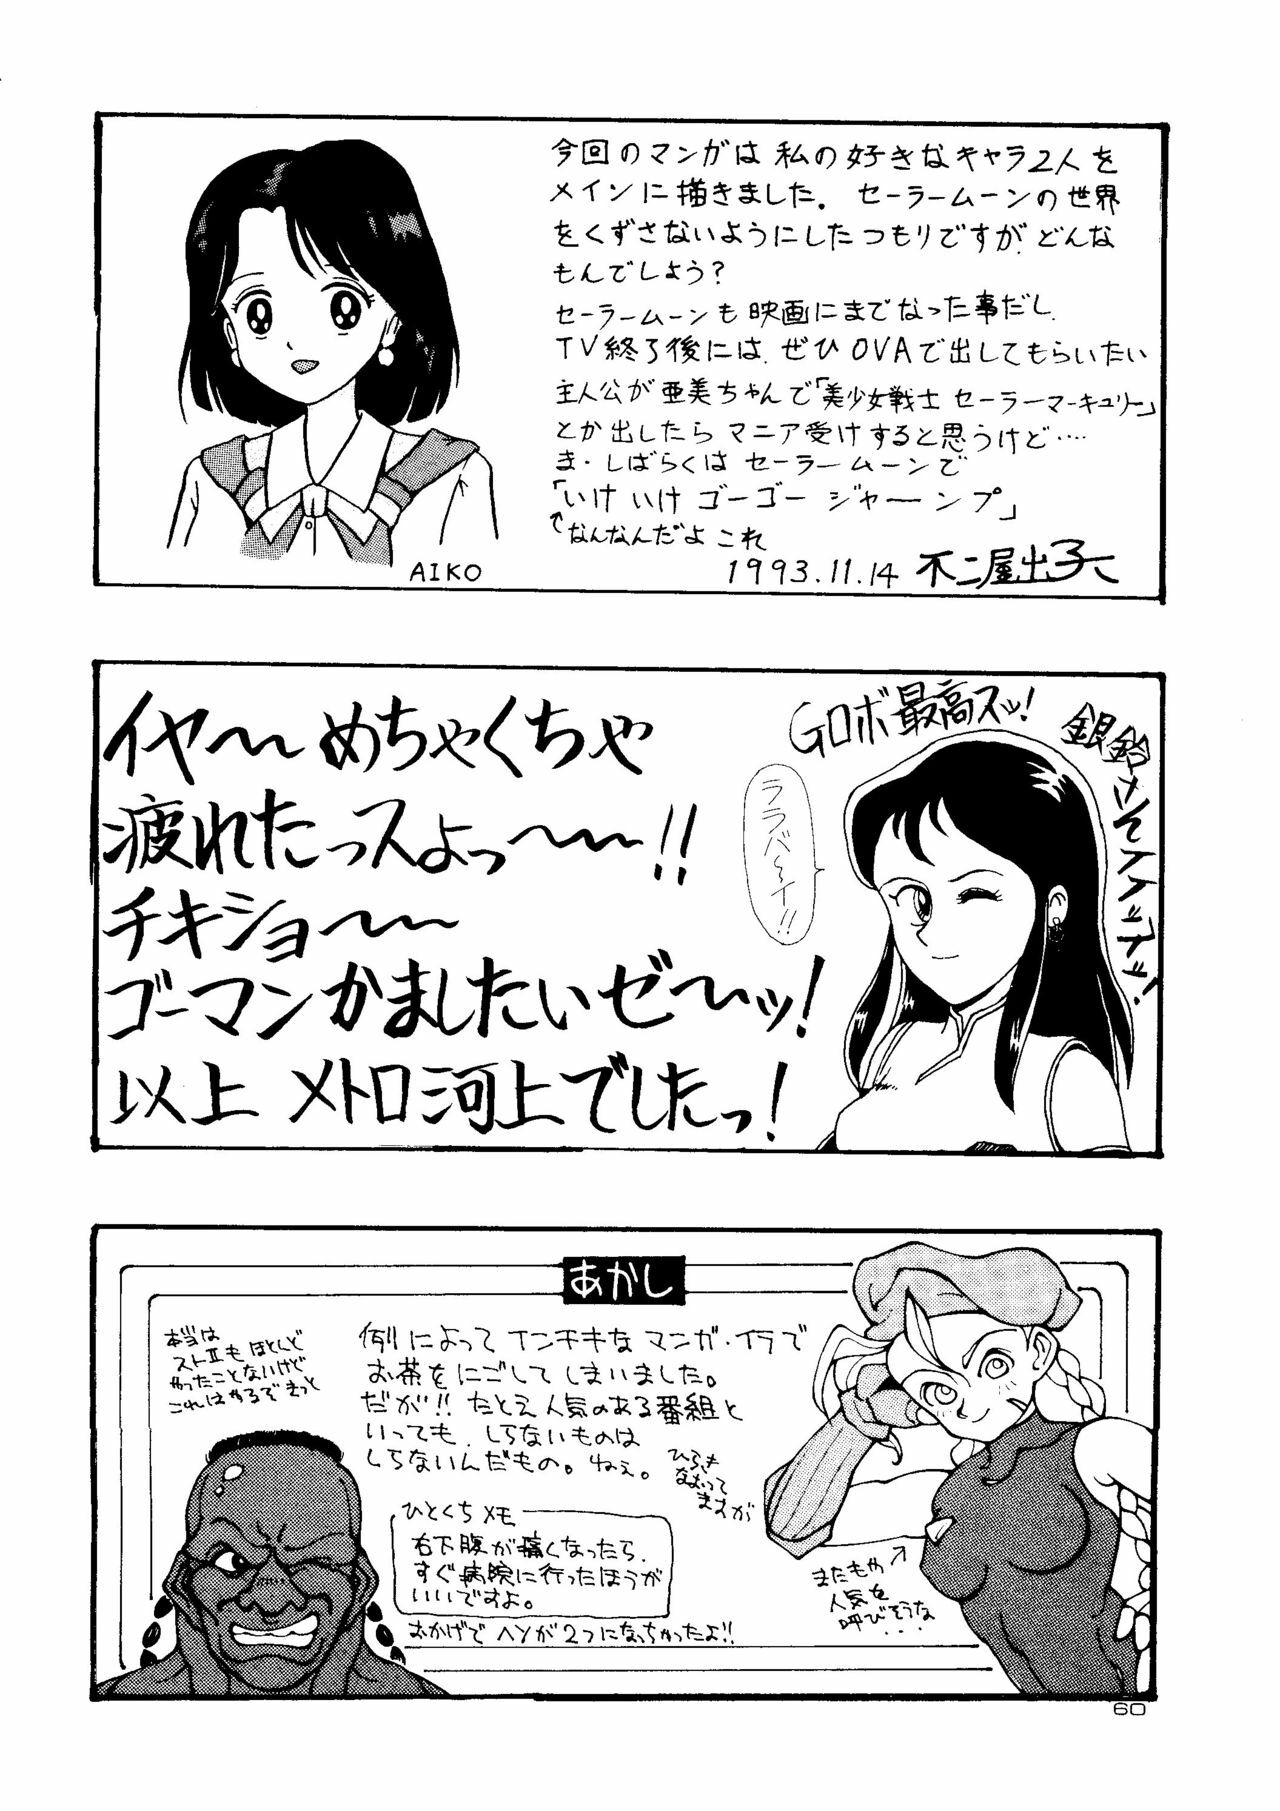 今回のマンガは私の好きなキャラ2人を
メインに描きました。セーラームーンの世界
をくずさないようにしたつもりですが、どんな
もんでしょう?
セーラームーンも映画にまでなった事だし、
TV終了後には、ぜひOVAで出してもらいたい
主人公が亜美ちゃんで「美少女戦士セーラーマーキュリー」
とか出したらマニア受けすると思うけど‥‥
ま・しばらくはセーラームーンで
「いけいけゴーゴージャーンプ」
↑なんなんだよこれ
AIKO
1993.11.14 不二屋出子
イヤ〜〜めちゃくちゃ
疲れたっスよっ〜〜〜!!
チキショ〜〜
ゴーマンかましたいゼ〜ッ!
以上 メトロ河上でしたっ!
Gロボ最高スッ!
銀鈴さんイイッスッ!
ララバ〜イ!!
あかし
本当は
ストⅡもほとんど
やったことないけど
これはやるぞきっと
例によってインチキなマンガ・イラで
お茶をにごしてしまいました。
だが!!たとえ人気のある番組と
いっても、しらないものは
しらないんだもの。ねぇ。
ひらき
なおって
ますが
ひとくちメモ
右下腹が痛くなったら、
すぐ病院に行ったほうが
いいですよ。
おかげでヘソが2つになっちゃったよ!!
またもや
人気を
呼びそうな
・・・
60